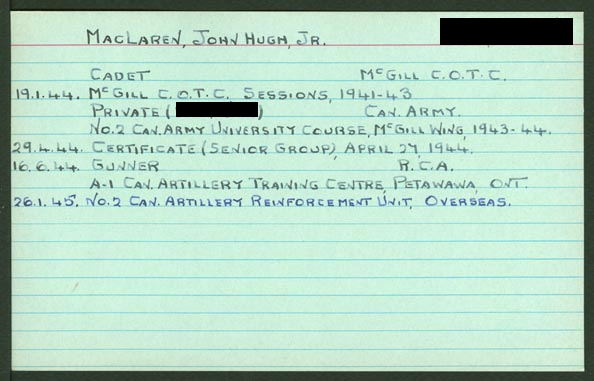 MacLaren, John Hugh, Jr.
Cadet McGill C.O.T.C.
19.1.44. McGill C.O.T.C. Sessions, 1941-43
Private ( ) Can. Army.
No.2 Can. Army University Course, McGill Wing, 1943-44.
29.4.44. Certificate (Senior Group), April 27, 1944.
16.6.44. Gunner R.C.A.
A-1 Can. Artillery Training Centre, Petawawa, Ont.
26.1.45. No.2 Can. Artillery Reinforcement Unit, Overseas.